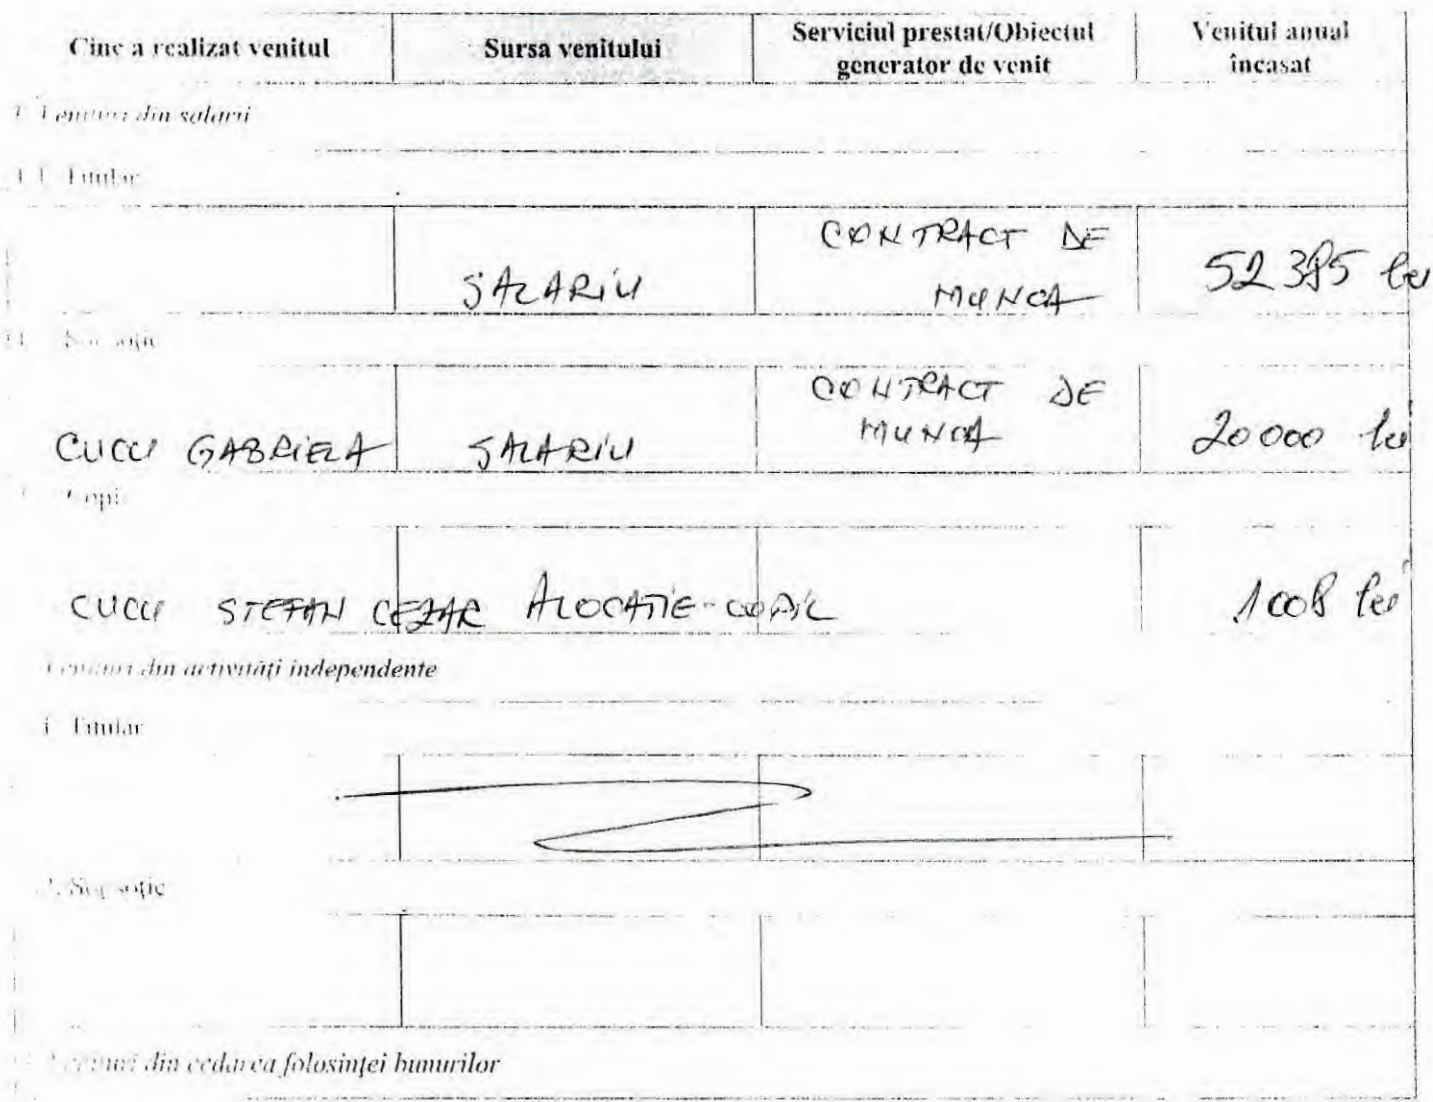 Cine a realizat venitul | Sursa venitului | Serviciul prestat/Obiectul generator de venit | Venitul anual încasat
1. Venituri din salarii
1.1. Titular
SALARIU | CONTRACT DE MUNCA | lei
Soț/soție
CUCU GABRIELA | SALARIU | CONTRACT DE MUNCA | 20000 lei
Copii
CUCU STEFAN CEZAR | ALOCATIE-COPIL | 1008 lei
Venituri din activități independente
Titular
2. Soț/soție
Venituri din cedarea folosinței bunurilor